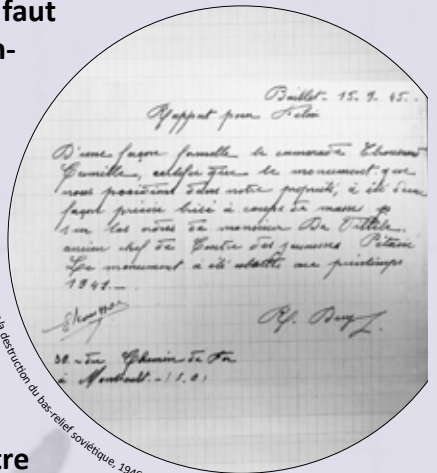 faut
n-
Baillet - 15. 9. 45.
Rapport pour
D'une façon formelle le camarade
Camille, certifie que le monument que
nous possédons dans notre propriété, à été d'une
façon précise brisé à coups de masse
sur les ordres de monsieur De
ancien chef de Centre des jeunesses Pétain
Le monument à été abattu au printemps
1941.
30 - du Chemin de Fer
à
la destruction du bas-relief soviétique, 194
tre